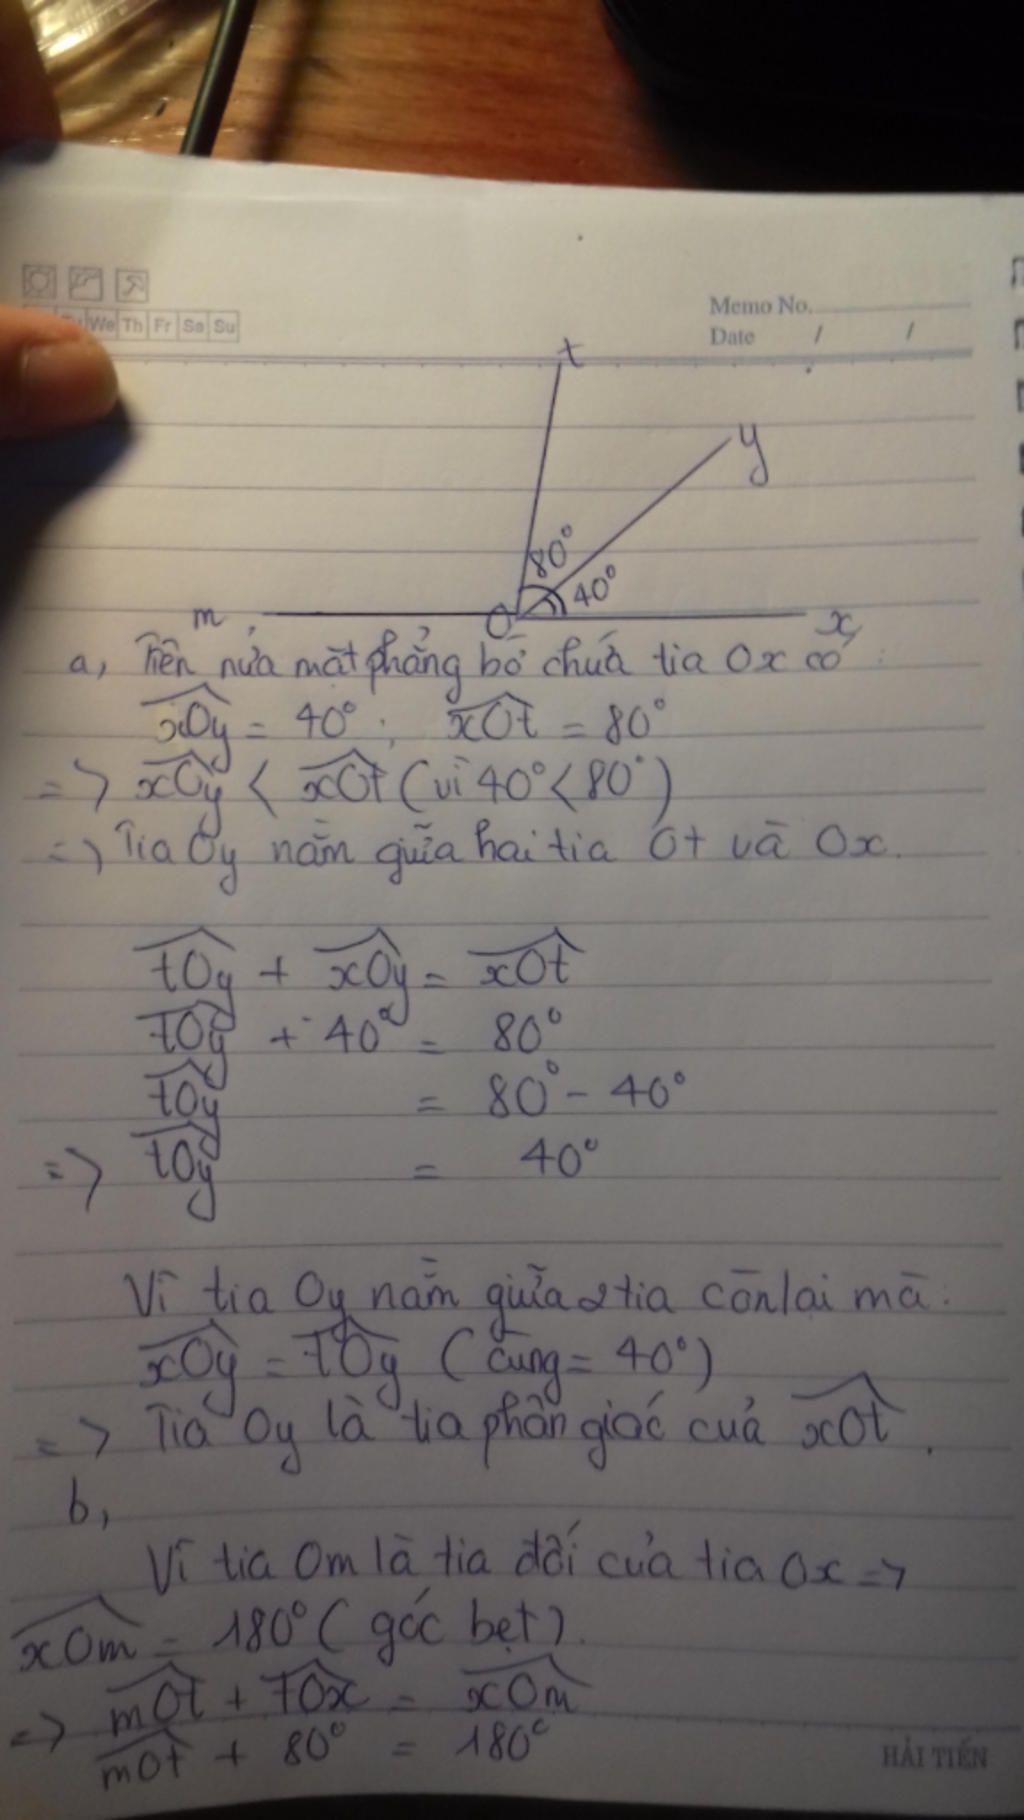 We Th Fr Sa Su
Memo No.
Date / /
t
y
80°
40°
m O x
a, Trên nửa mặt phẳng bờ chứa tia Ox có:
xOy = 40°; xOt = 80°
=> xOy < xOt (vì 40° < 80°)
=> Tia Oy nằm giữa hai tia Ot và Ox.
tOy + xOy = xOt
tOy + 40° = 80°
tOy = 80° - 40°
=> tOy = 40°
Vì tia Oy nằm giữa 2 tia còn lại mà:
xOy = tOy (cùng = 40°)
=> Tia Oy là tia phân giác của xOt.
b,
Vì tia Om là tia đối của tia Ox =>
xOm = 180° (góc bẹt).
=> mOt + tOx = xOm
mOt + 80° = 180°
HẢI TIẾN